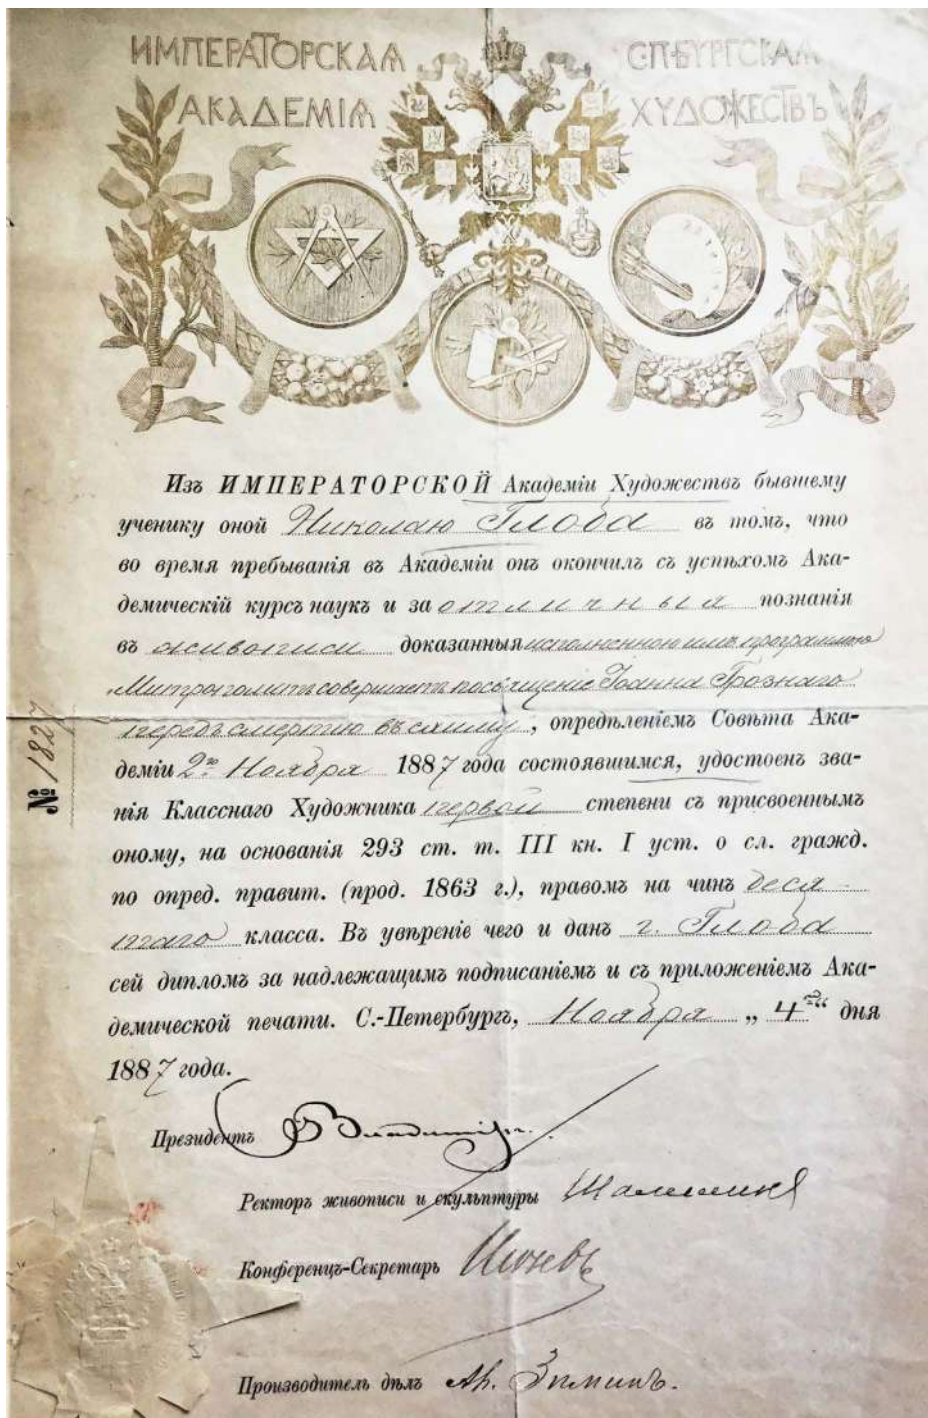 ИМПЕРАТОРСКАЯ СПБУРГСКАЯ
АКАДЕМІЯ ХУДОЖЕСТВЪ
Изъ ИМПЕРАТОРСКОЙ Академіи Художествъ бывшему
ученику оной Николаю Глоба въ томъ, что
во время пребыванія въ Академіи онъ окончилъ съ успѣхомъ Ака-
демическій курсъ наукъ и за отличныя познанія
въ живописи доказанныя исполненною имъ программою
„Митрополитъ совершаетъ посвященіе Іоанна Грознаго
передъ смертію въ схиму, опредѣленіемъ Совѣта Ака-
деміи 2го Ноября 1887 года состоявшимся, удостоенъ зва-
нія Класснаго Художника первой степени съ присвоеннымъ
оному, на основанія 293 ст. т. III кн. I уст. о сл. гражд.
по опред. правит. (прод. 1863 г.), правомъ на чинъ деся-
таго класса. Въ увѣреніе чего и данъ г. Глоба
сей дипломъ за надлежащимъ подписаніемъ и съ приложеніемъ Ака-
демической печати. С.-Петербургъ, Ноября „ 4 “ дня
1887 года.
№ 1827
Президентъ Владиміръ.
Ректоръ живописи и скульптуры Шамшинъ
Конференцъ-Секретарь Исѣевъ
Производитель дѣлъ Ап. Зиминъ.